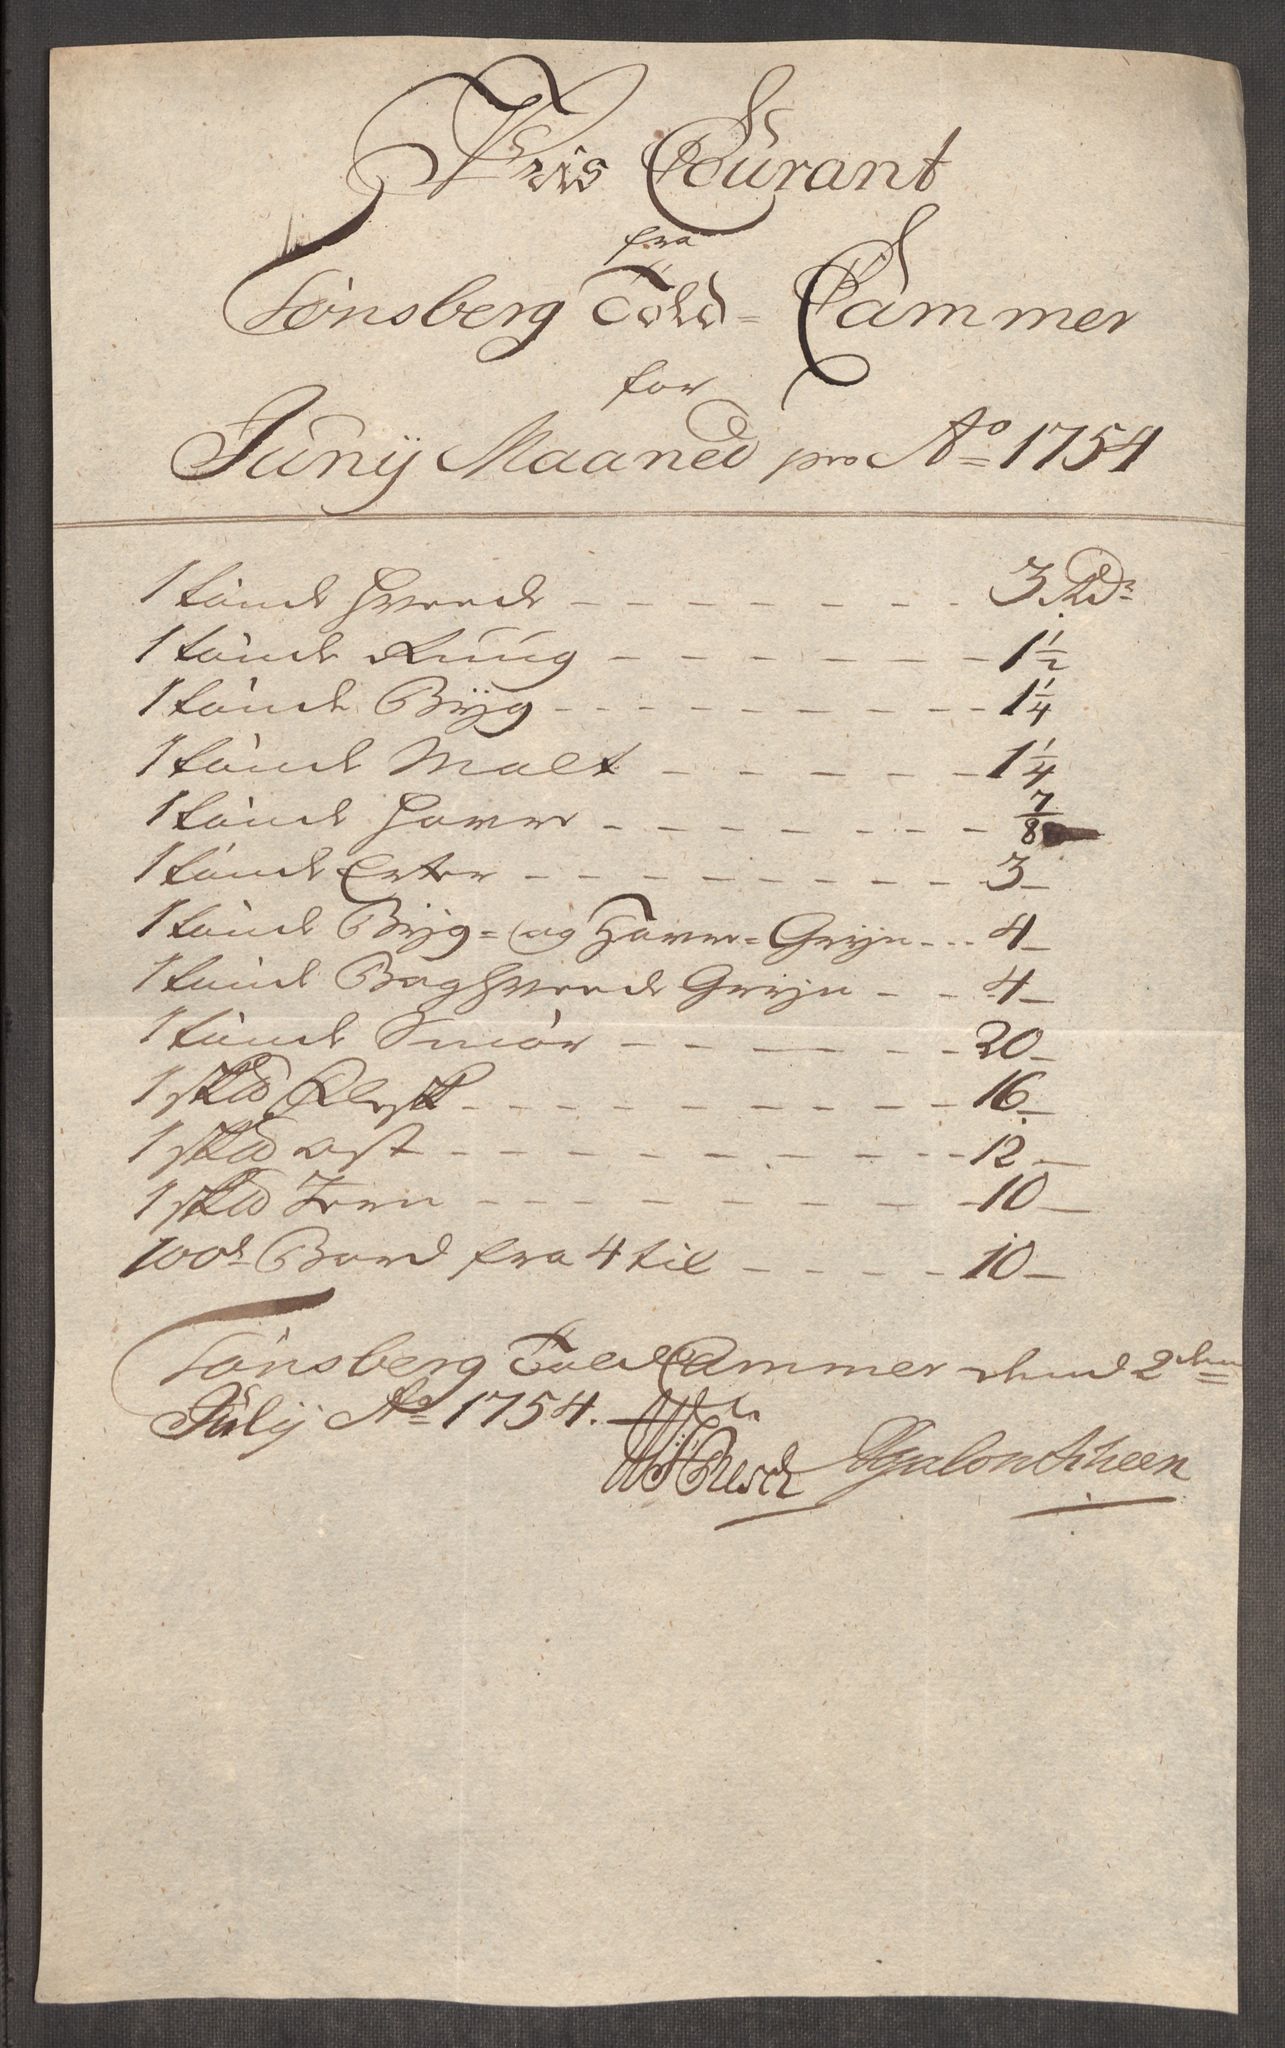 Pris Courant
fra
Tønsberg Told= Cammer
for
Junij Maaned pro Ao 1754
1 tønde Hveede - - - - - - - 3 Rdr
1 tønde Ruug - - - - - - - 1 1/2
1 tønde Bÿg - - - - - - - - 1 1/4
1 tønde Malt - - - - - - 1 1/4
1 tønde Havre - - - - - - - 7/8
1 tønde Erter - - - - - - - - 3 -
1 tønde Bÿg= og Havre= Grÿn - - - 4 -
1 tønde Boghveede Grÿn - - - 4 -
1 tønde Smør - - - - - - 20 -
1 sk℔ Flesk - - - - - - - - - 16 -
1 sk℔ ost - - - - - - - - - 12 -
1 sk℔ Jern - - - - - - - - - 10 -
100de Bord fra 4 til - - - - - 10 -
Tønsberg Told Cammer dend 2den
Julÿ Ao 1754.